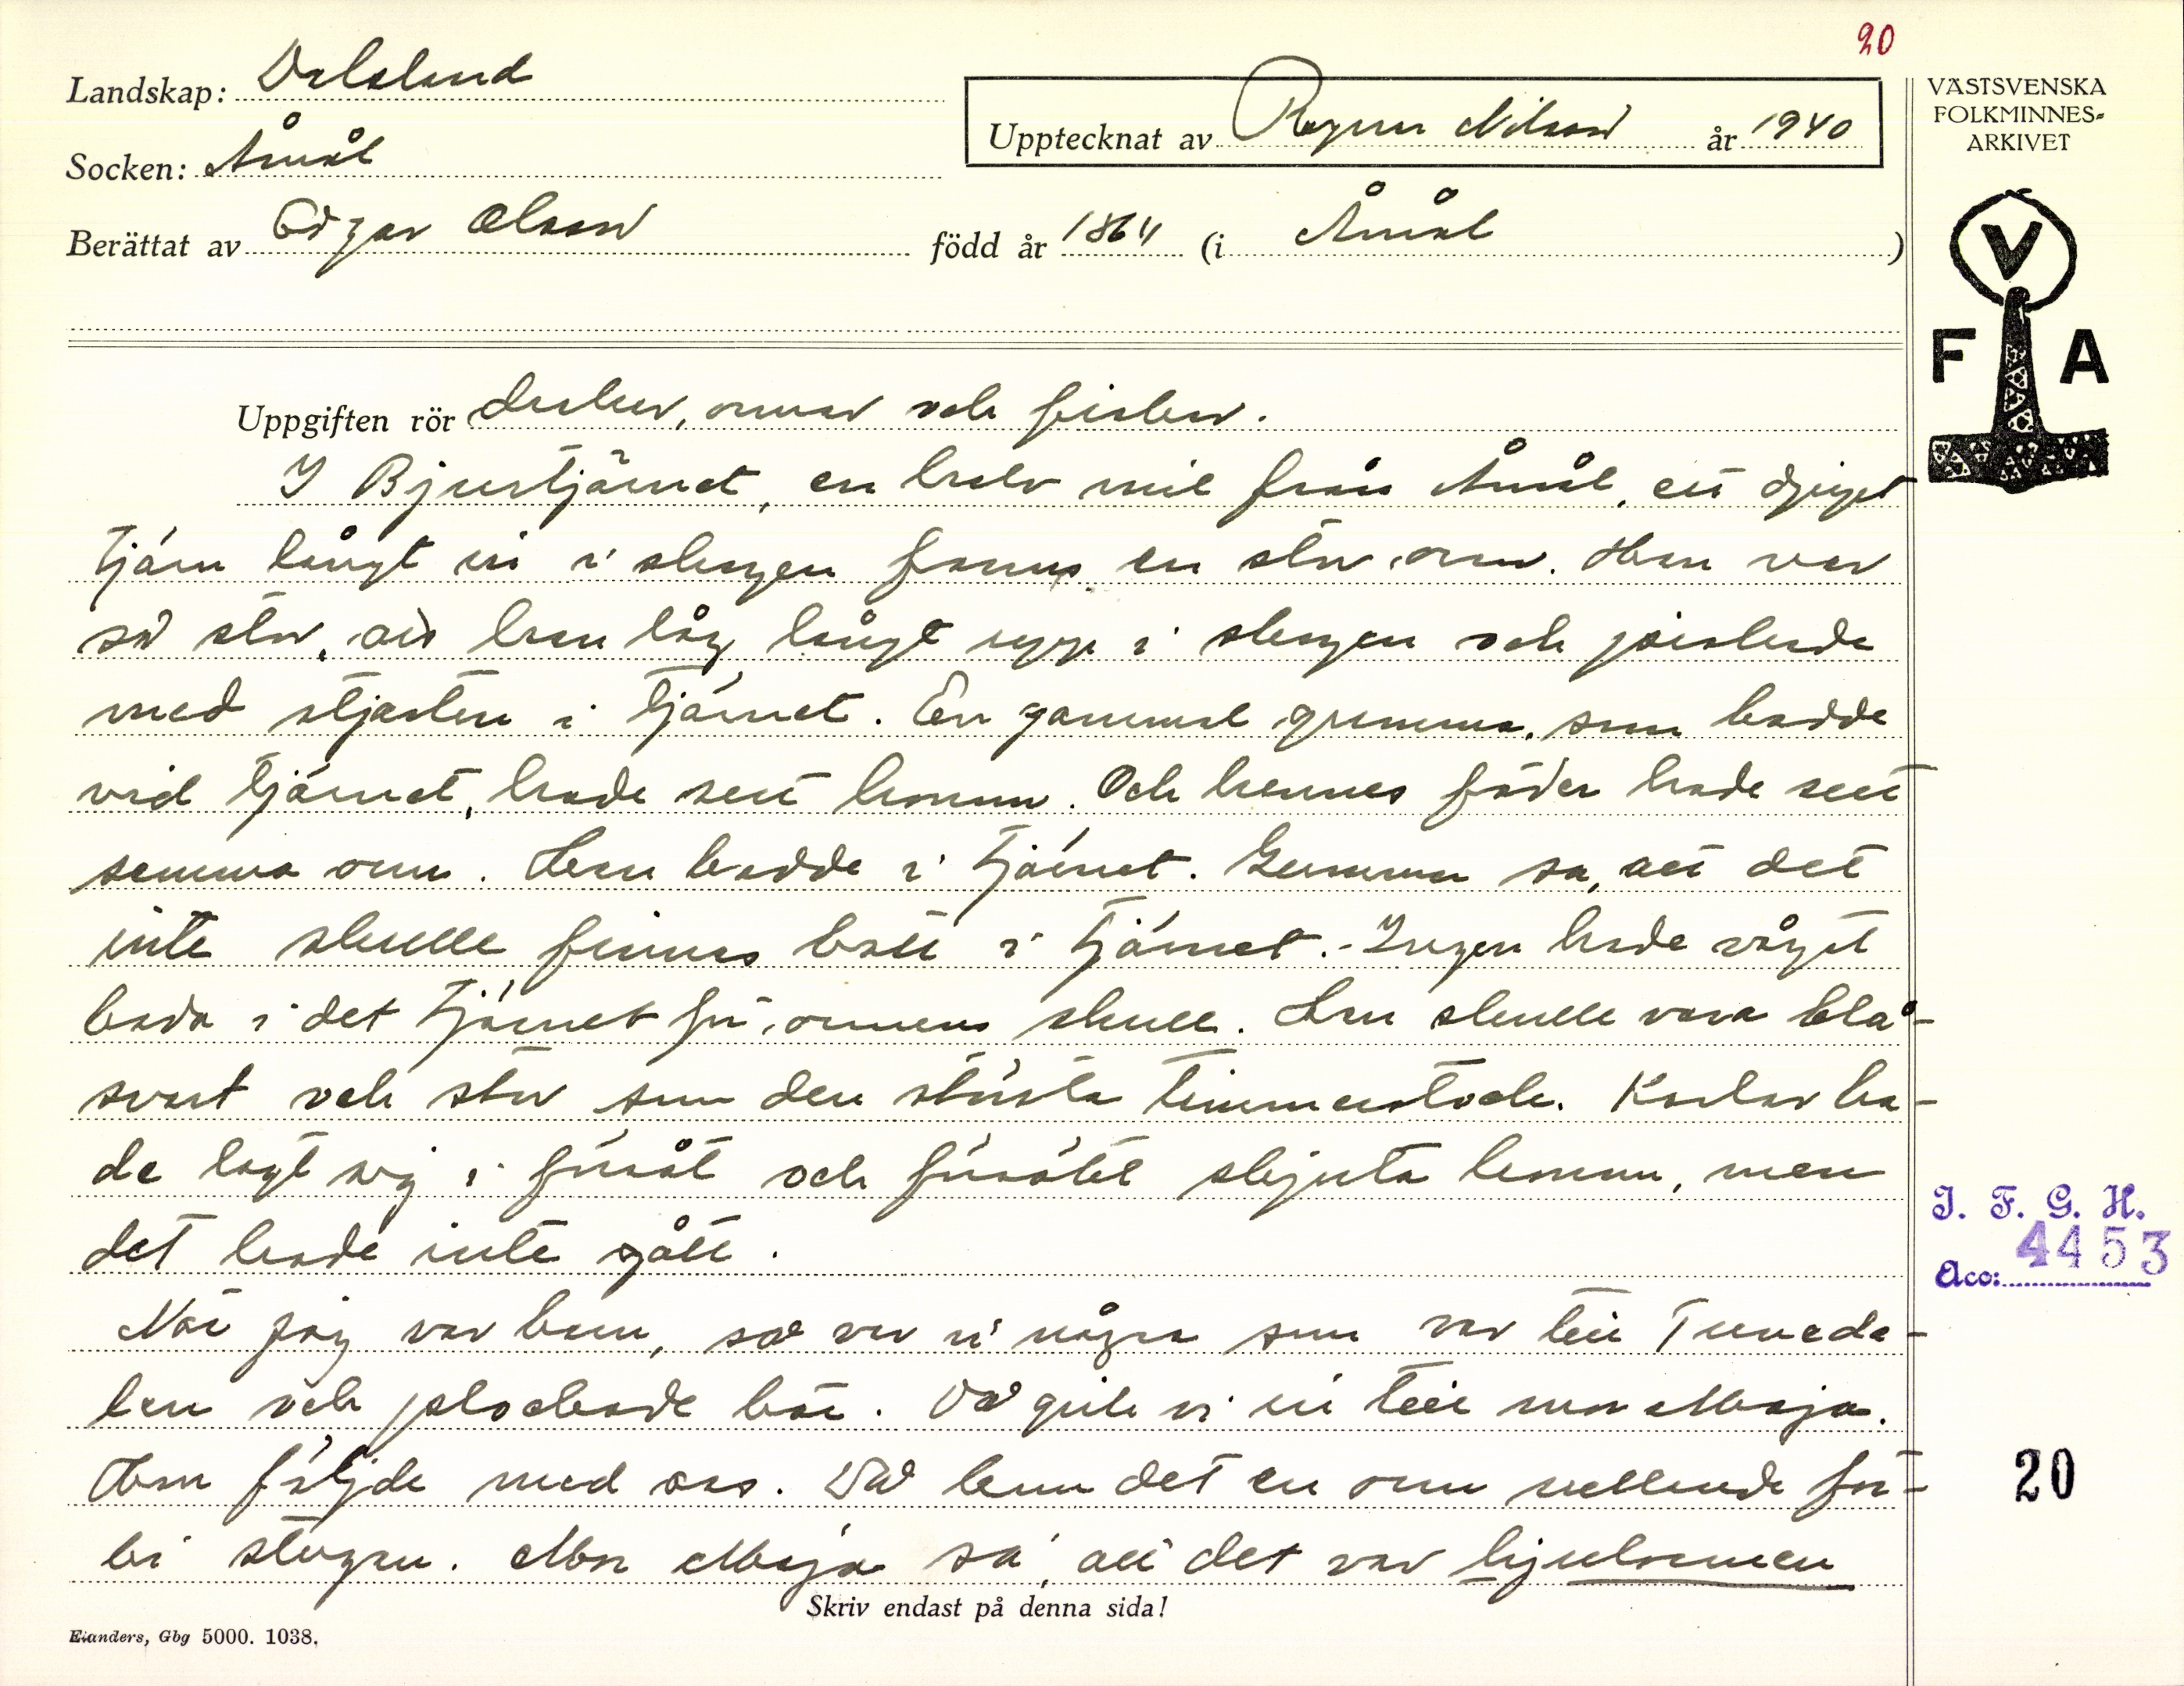 20
Landskap: Dalsland
Socken: Åmål
Upptecknat av Ragnar Nilsson år 1940
Berättat av Edgar Olsson född år 1864 (i Åmål)
VÄSTSVENSKA
FOLKMINNES-
ARKIVET
V
F A
Uppgiften rör drakar, ormar och fiskar.
I Bjurtjärnet, en halv mil från Åmål, ett djupt
tjärn långt in i skogen fanns en stor orm. Han var
så stor, att han låg långt upp i skogen och piskade
med stjärten i tjärnet. En gammal gumma, som bodde
vid tjärnet, hade sett honom. Och hennes föder hade sett
samma orm. Han bodde i tjärnet. Gumman sa, att det
inte skulle finnas bott i tjärnet. - Ingen hade vågat
bada i det tjärnet för ormens skull. Han skulle vara blå-
svart och stor som den största timmerstock. Karlar ha-
de lagt sig i försåt och försökt skjuta honom, men
det hade inte gått.
När jag var barn, så var vi några som var till Tuneda-
len och plockade bär. Då gick vi in till mor Maja.
Hon följde med oss. Då kom det en orm rullande för-
bi stugan. Mor Maja sa, att det var hjulormen
Skriv endast på denna sida!
I. F. G. H.
Acc: 4453
20
Elanders, Gbg 5000. 1038.